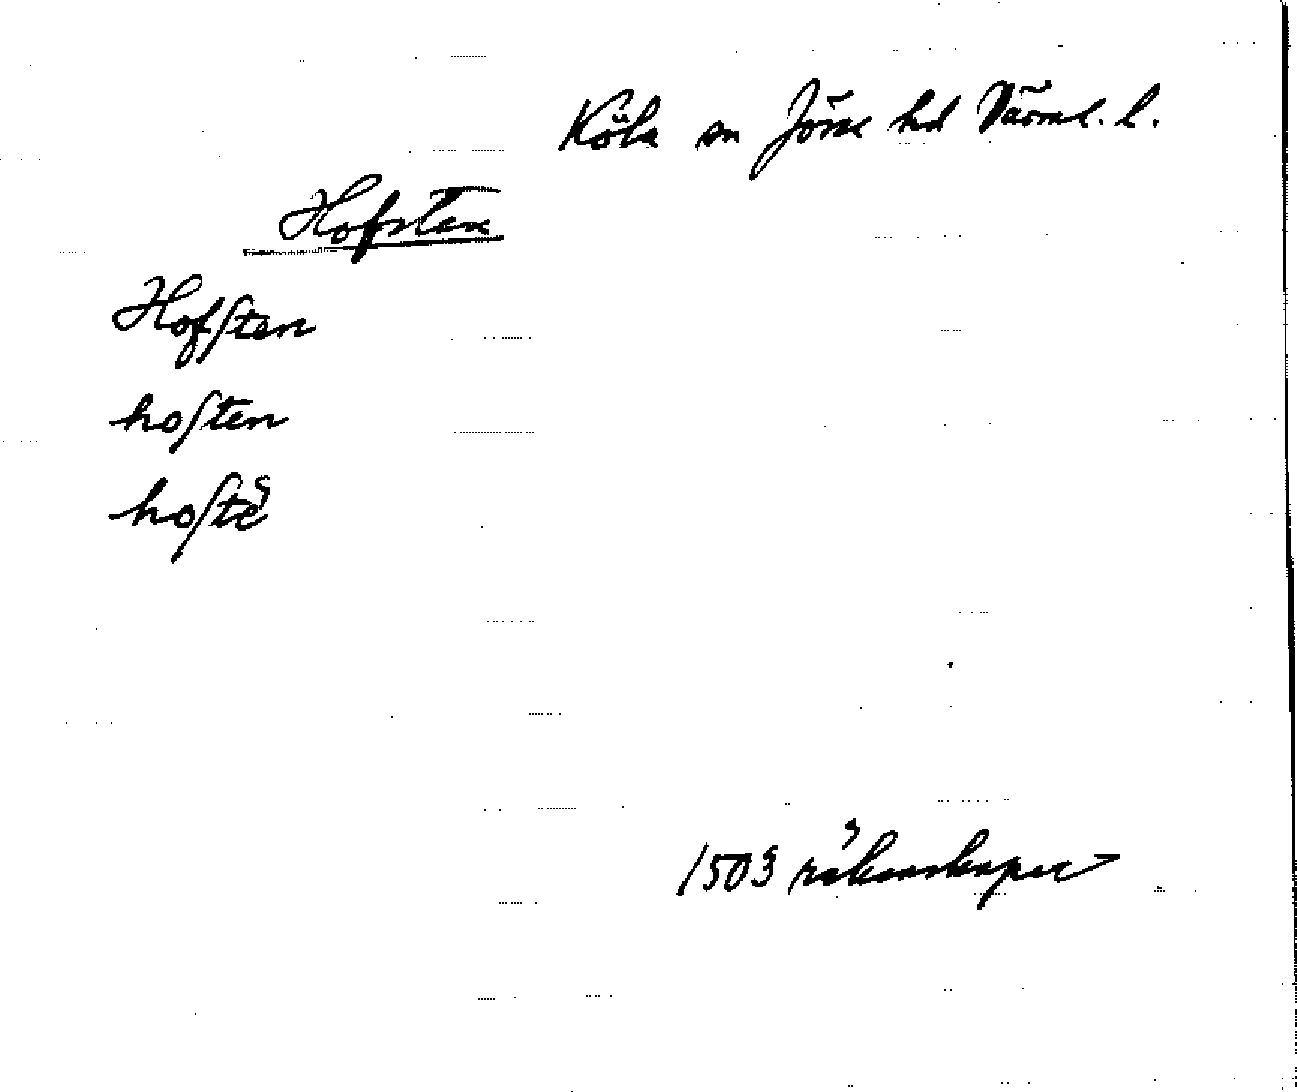 Köla sn Jösse hd Värml. l.
Hofsten
Hofſten
hoſten
hoſtē
1503 räkenskaper